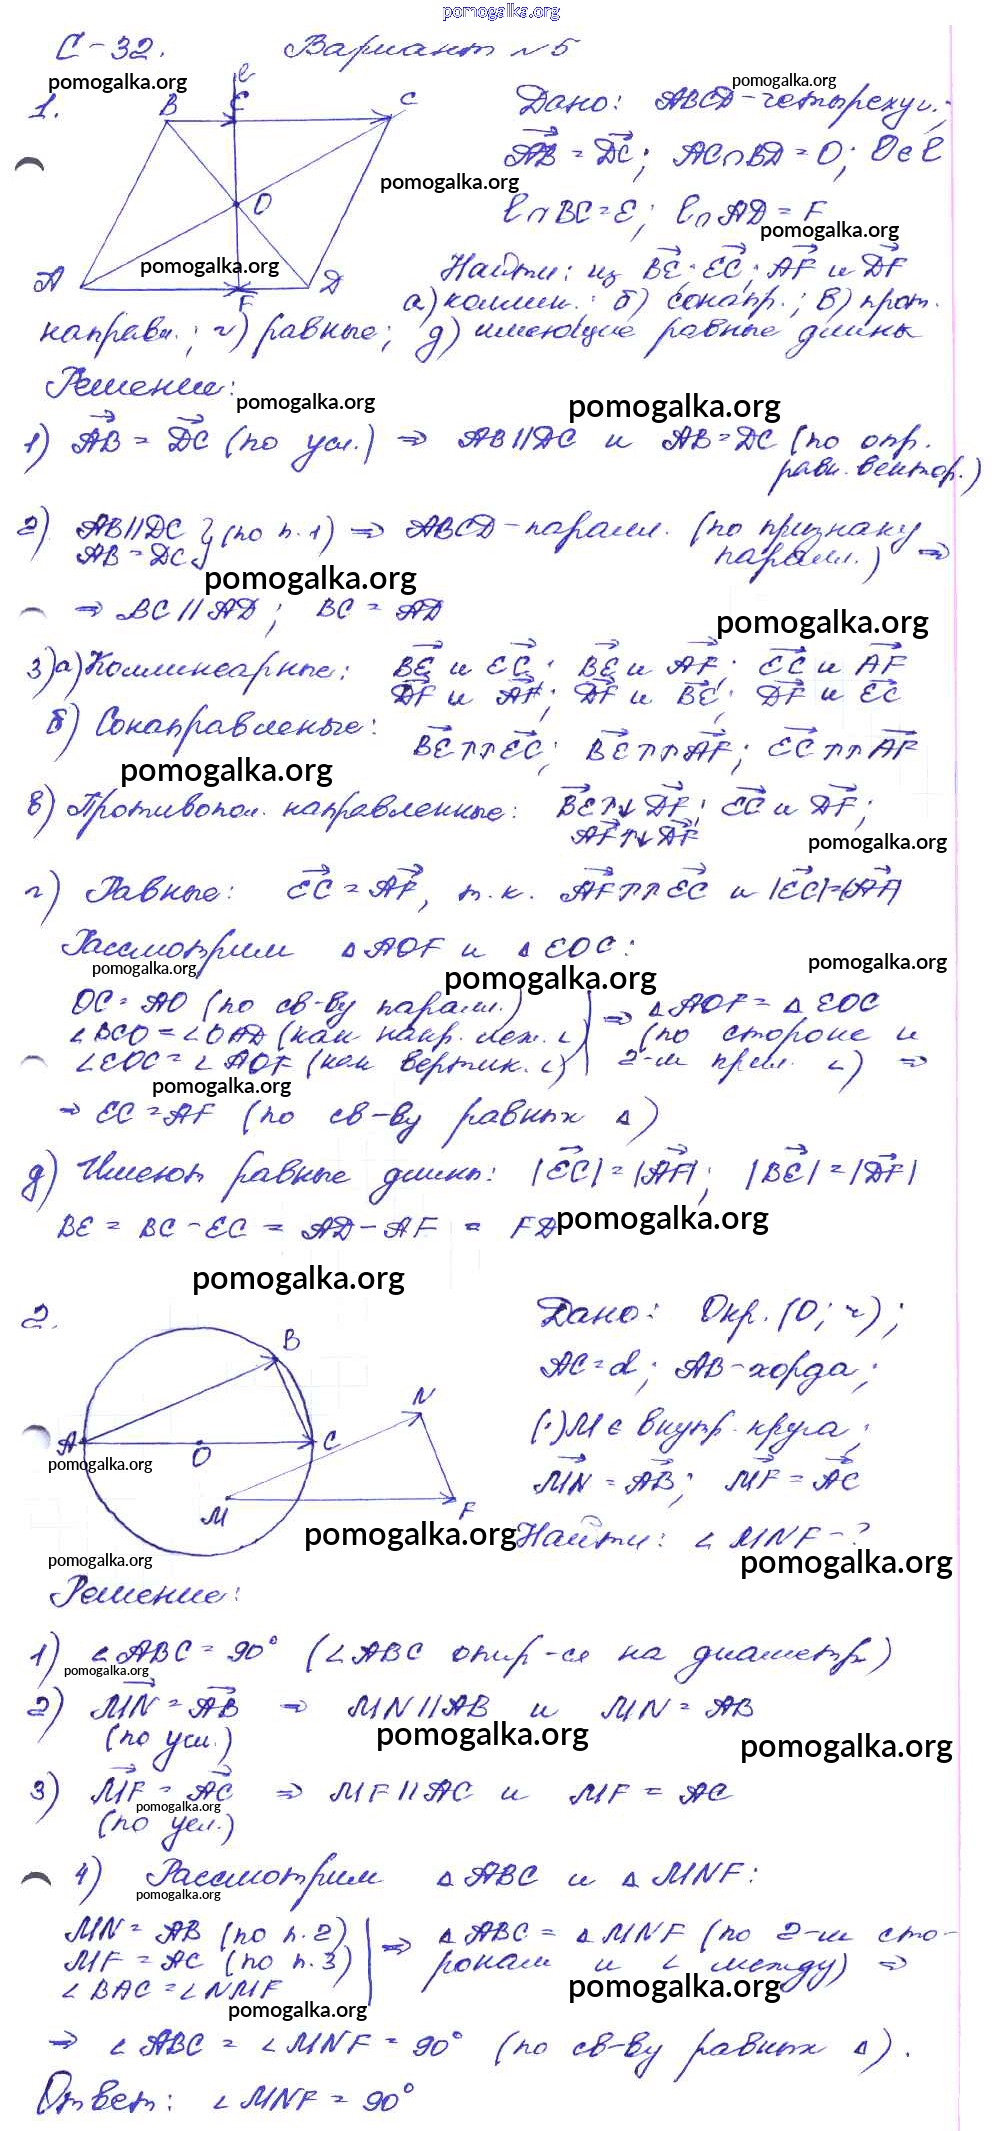 pomogalka.org
С-32. Вариант №5
pomogalka.org
pomogalka.org
1.
B E C
l
O
A F D
Дано: ABCD-четырехуг.;
AB = DC; AC∩BD = O; O∈l
pomogalka.org
l∩BC=E; l∩AD=F
pomogalka.org
pomogalka.org
Найти: из BE; EC; AF и DF
а) коллин.; б) сонапр.; в) прот.
направл.; г) равные; д) имеющие равные длины
Решение:
pomogalka.org
pomogalka.org
1) AB = DC (по усл.) ⇒ AB||DC и AB=DC (по опр.
равн. вектор.)
2) AB||DC } (по п.1) ⇒ ABCD-паралл. (по признаку
AB=DC паралл.) ⇒
pomogalka.org
⇒ BC||AD; BC=AD
pomogalka.org
3) а) Коллинеарные: BE и EC; BE и AF; EC и AF
DF и AF; DF и BE; DF и EC
б) Сонаправленые:
BE↑↑EC; BE↑↑AF; EC↑↑AF
pomogalka.org
в) Противопол. направленные: BE↑↓DF; EC и DF;
AF↑↓DF
pomogalka.org
г) Равные: EC = AF, т.к. AF↑↑EC и |EC|=|AF|
Рассмотрим △AOF и △EOC:
pomogalka.org
pomogalka.org
pomogalka.org
OC=AO (по св-ву паралл.) ⇒ △AOF = △EOC
∠BCO=∠OAD (как накр. леж. ∠) (по стороне и
∠EOC=∠AOF (как вертик. ∠) 2-м прил. ∠) ⇒
pomogalka.org
⇒ EC=AF (по св-ву равных △)
д) Имеют равные длины: |EC|=|AF|; |BE|=|DF|
BE = BC-EC = AD-AF = FD
pomogalka.org
pomogalka.org
2.
B
N
A O C
M F
Дано: Окр.(O; r);
AC=d; AB-хорда;
(·)M∈ внутр. круга;
MN = AB; MF = AC
pomogalka.org
pomogalka.org
Найти: ∠MNF-?
pomogalka.org
pomogalka.org
Решение:
1) ∠ABC = 90° (∠ABC опир-ся на диаметр)
pomogalka.org
2) MN = AB ⇒ MN||AB и MN = AB
(по усл.)
pomogalka.org
pomogalka.org
3) MF = AC ⇒ MF||AC и MF = AC
pomogalka.org
(по усл.)
4) Рассмотрим △ABC и △MNF:
pomogalka.org
MN = AB (по п.2) ⇒ △ABC = △MNF (по 2-м сто-
MF = AC (по п.3) ронам и ∠ между) ⇒
∠BAC=∠NMF
pomogalka.org
pomogalka.org
⇒ ∠ABC = ∠MNF = 90° (по св-ву равных △).
Ответ: ∠MNF = 90°